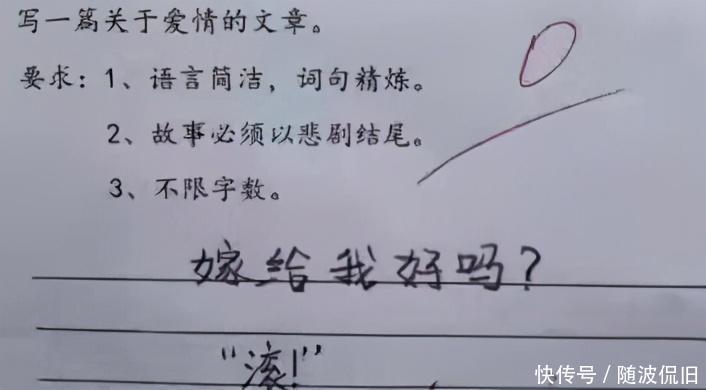 写一篇关于爱情的文章。
要求：1、语言简洁，词句精炼。
2、故事必须以悲剧结尾。
3、不限字数。
嫁给我好吗？
“滚！”
快传号／随波侃旧